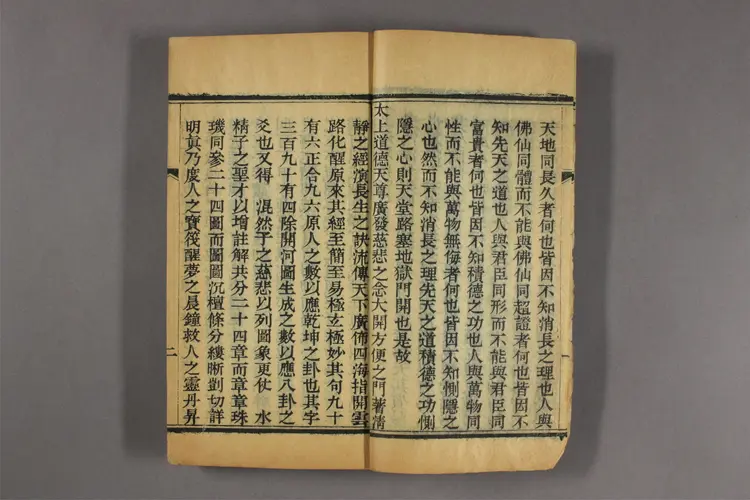 天地同長久者何也皆因不知消長之理也人與
佛仙同體而不能與佛仙同超證者何也皆因不
知先天之道也人與君臣同形而不能與君臣同
富貴者何也皆因不知積德之功也人與萬物同
性而不能與萬物無侮者何也皆因不知惻隱之
心也然而不知消長之理先天之道積德之功惻
隱之心則天堂路塞地獄門開也是故
太上道德天尊廣發慈悲之念大開方便之門著清
靜之經演長生之訣流傳天下廣佈四海指開雲
路化醒原來其經至簡至易極玄極妙其句九十
有六正合九六原人之數以應乾坤之卦也其字
三百九十有四除開河圖生成之數以應八卦之
爻也又得 混然子之慈悲以列圖象更仗 水
精子之聖才以增註解共分二十四章而章章珠
璣同參二十四圖而圖圖沉檀條分縷晰剴切詳
明真乃度人之寶筏醒夢之晨鐘救人之靈丹昇
一
二